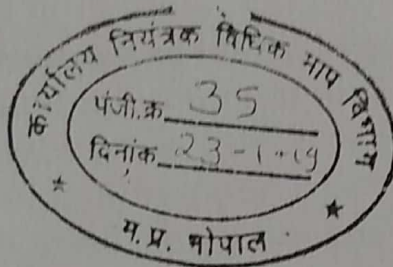 कार्यालय नियंत्रक विधिक माप विभाग
पंजी.क्र 35
दिनांक 23-1-19
म.प्र. भोपाल